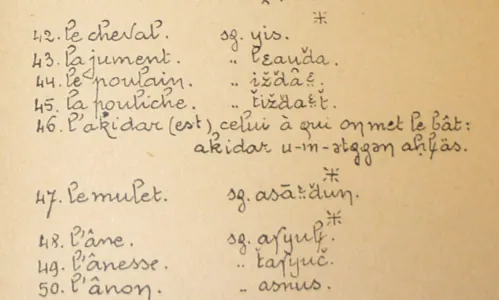 42. le cheval. sg. yis.
43. la jument. „ lɛauda.
44. le poulain. „ iždâɛ.
45. la pouliche. „ tiždaɛt.
46. l'akidar (est) celui à qui on met le bât:
akidar u-m-ətggən
47. le mulet. sg.
48. l'âne. sg.
49. l'ânesse. „
50. l'ânon. „ asnus.